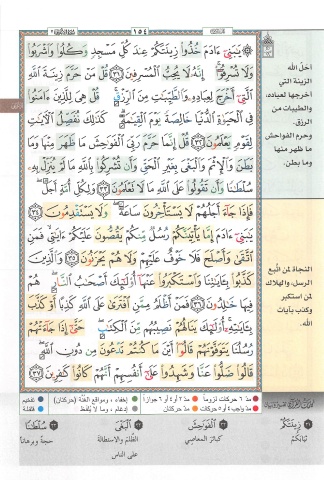 ١٥٤
يَٰبَنِىٓ ءَادَمَ خُذُوا۟ زِينَتَكُمْ عِندَ كُلِّ مَسْجِدٍ وَكُلُوا۟ وَٱشْرَبُوا۟
وَلَا تُسْرِفُوٓا۟ إِنَّهُۥ لَا يُحِبُّ ٱلْمُسْرِفِينَ ٣١ قُلْ مَنْ حَرَّمَ زِينَةَ ٱللَّهِ
ٱلَّتِىٓ أَخْرَجَ لِعِبَادِهِۦ وَٱلطَّيِّبَٰتِ مِنَ ٱلرِّزْقِ قُلْ هِىَ لِلَّذِينَ ءَامَنُوا۟
فِى ٱلْحَيَوٰةِ ٱلدُّنْيَا خَالِصَةً يَوْمَ ٱلْقِيَٰمَةِ كَذَٰلِكَ نُفَصِّلُ ٱلْءَايَٰتِ
لِقَوْمٍ يَعْلَمُونَ ٣٢ قُلْ إِنَّمَا حَرَّمَ رَبِّىَ ٱلْفَوَٰحِشَ مَا ظَهَرَ مِنْهَا وَمَا
بَطَنَ وَٱلْإِثْمَ وَٱلْبَغْىَ بِغَيْرِ ٱلْحَقِّ وَأَن تُشْرِكُوا۟ بِٱللَّهِ مَا لَمْ يُنَزِّلْ بِهِۦ
سُلْطَٰنًا وَأَن تَقُولُوا۟ عَلَى ٱللَّهِ مَا لَا تَعْلَمُونَ ٣٣ وَلِكُلِّ أُمَّةٍ أَجَلٌ
فَإِذَا جَآءَ أَجَلُهُمْ لَا يَسْتَأْخِرُونَ سَاعَةً وَلَا يَسْتَقْدِمُونَ ٣٤
يَٰبَنِىٓ ءَادَمَ إِمَّا يَأْتِيَنَّكُمْ رُسُلٌ مِّنكُمْ يَقُصُّونَ عَلَيْكُمْ ءَايَٰتِى فَمَنِ
ٱتَّقَىٰ وَأَصْلَحَ فَلَا خَوْفٌ عَلَيْهِمْ وَلَا هُمْ يَحْزَنُونَ ٣٥ وَٱلَّذِينَ
كَذَّبُوا۟ بِـَٔايَٰتِنَا وَٱسْتَكْبَرُوا۟ عَنْهَآ أُو۟لَٰٓئِكَ أَصْحَٰبُ ٱلنَّارِ هُمْ
فِيهَا خَٰلِدُونَ ٣٦ فَمَنْ أَظْلَمُ مِمَّنِ ٱفْتَرَىٰ عَلَى ٱللَّهِ كَذِبًا أَوْ كَذَّبَ
بِـَٔايَٰتِهِۦٓ أُو۟لَٰٓئِكَ يَنَالُهُمْ نَصِيبُهُم مِّنَ ٱلْكِتَٰبِ حَتَّىٰٓ إِذَا جَآءَتْهُمْ
رُسُلُنَا يَتَوَفَّوْنَهُمْ قَالُوٓا۟ أَيْنَ مَا كُنتُمْ تَدْعُونَ مِن دُونِ ٱللَّهِ
قَالُوا۟ ضَلُّوا۟ عَنَّا وَشَهِدُوا۟ عَلَىٰٓ أَنفُسِهِمْ أَنَّهُمْ كَانُوا۟ كَٰفِرِينَ ٣٧
أحل الله
الزينة التي
أخرجها لعباده،
والطيبات من
الرزق.
وحرم الفواحش
ما ظهر منها
وما بطن.
النجاة لمن اتبع
الرسل، والهلاك
لمن استكبر
وكذب بآيات
الله
مدّ ٦ حركات لزوماً مدّ ٢ أو ٤ أو ٦ جوازاً إخفاء، ومواقع الغُنَّة (حركتان) تفخيم
مدّ واجب ٤ أو ٥ حركات مدّ حركتان إدغام، وما لا يُلفظ قلقلة
زِينَتَكُمْ ٱلْفَوَٰحِشَ ٱلْبَغْىَ سُلْطَٰنًا
ثيابكم كبائر المعاصي الظلم والاستطالة حجة وبرهاناً
على الناس